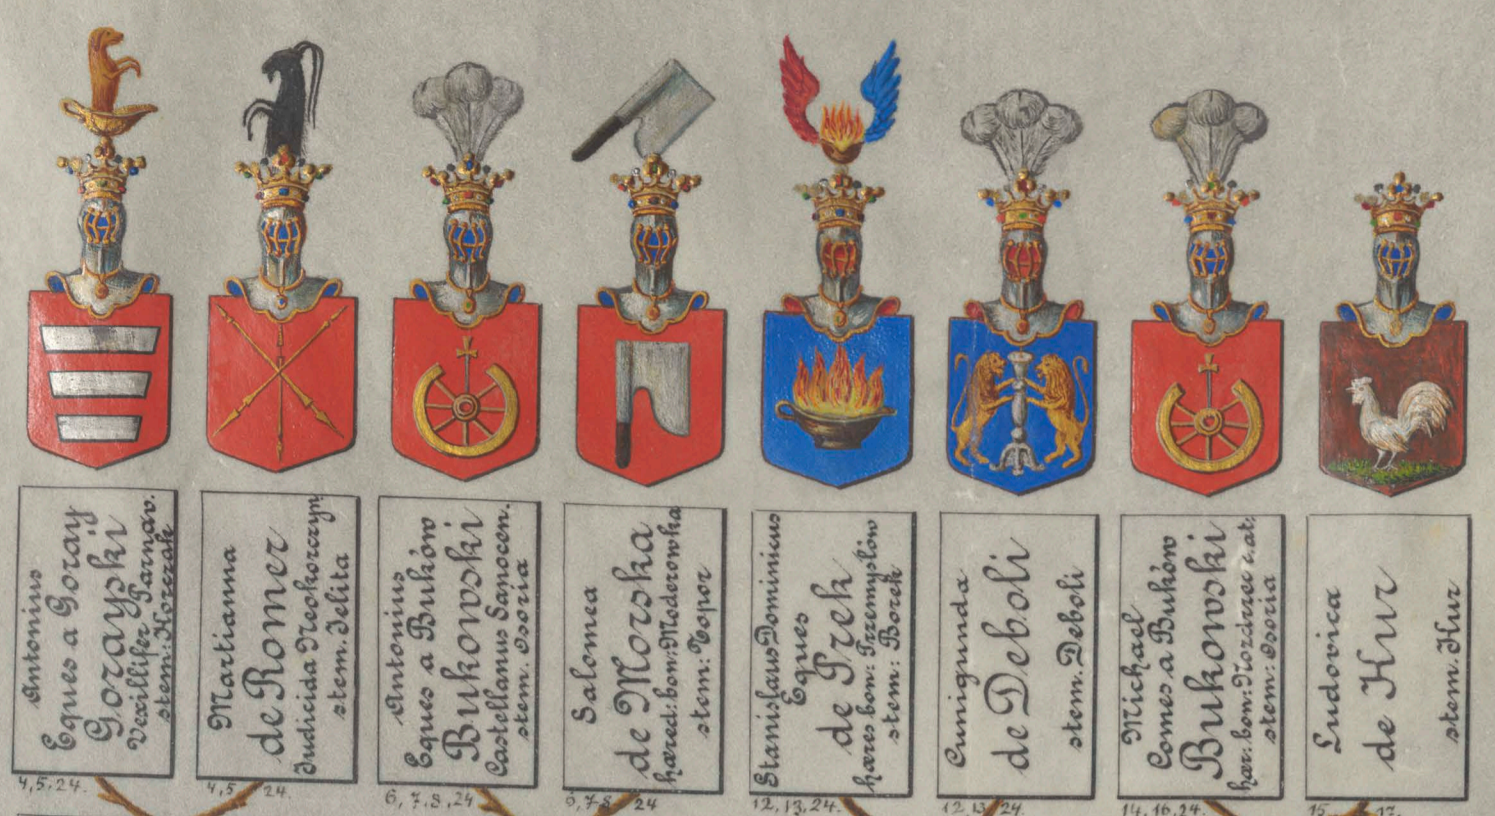 Antonius
Eques a Goray
Gorayski
Vexillifer Parnav.
stem: Korczak
4, 5, 24.
Martianna
de Romer
Judicida Neokorczyn.
stem. Jelita
4, 5 24.
Antonius
Eques a Buków
Bukowski
Castellanus Sanocen.
stem. Osoria
6, 7. 8, 24
Salomea
de Morska
hæred: bon: Moderowka
stem: Topor
6, 7 8 24
Stanislaus Dominicus
Eques
de Prek
hæres bon: Przemyslów
stem: Borek
12, 13, 24.
Cunigunda
de Deboli
stem. Deboli
12, 13 24.
Michael
Comes a Buków
Bukowski
hær: bon: Nozdrzec e.at:
stem: Osoria
14, 16, 24.
Ludovica
de Kur
stem. Kur
15 17.